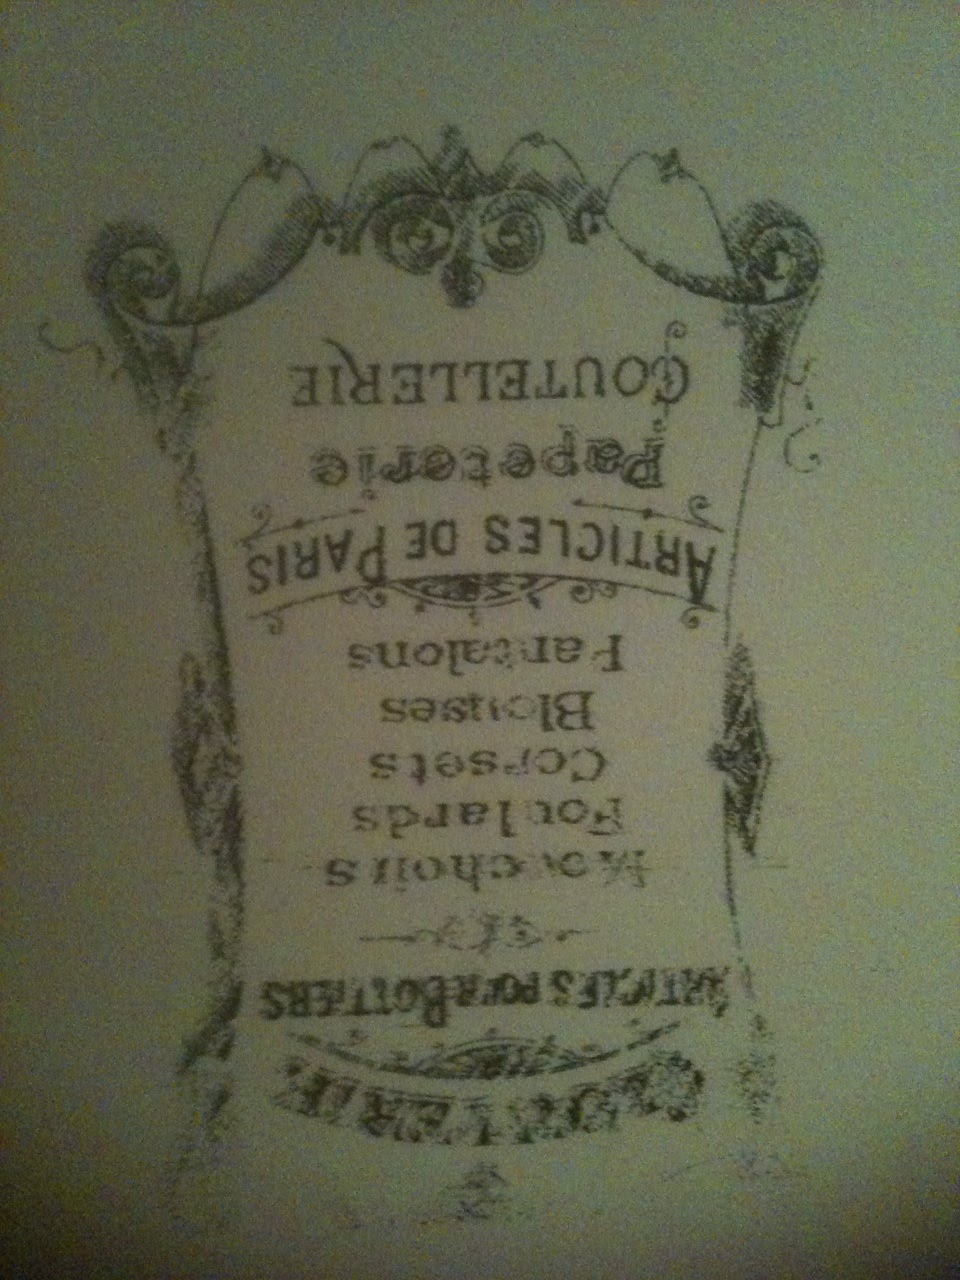 ARTICLES POUR BOTTIERS
Mouchoirs
Foulards
Corsets
Blouses
Pantalons
ARTICLES DE PARIS
Papeterie
COUTELLERIE